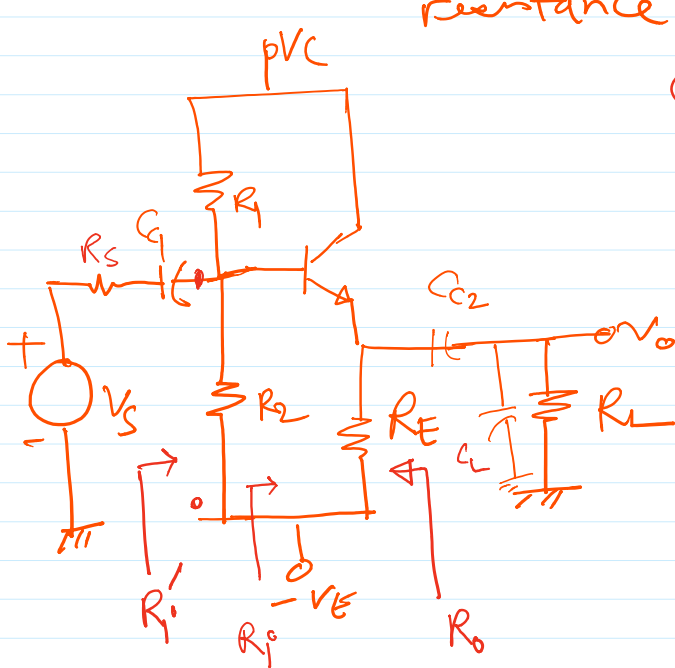 resistance
pVC
R1
C1
RS
CC2
+
Vo
VS
R2
RE
RL
-
CL
Ri'
-VE
Ri
Ro